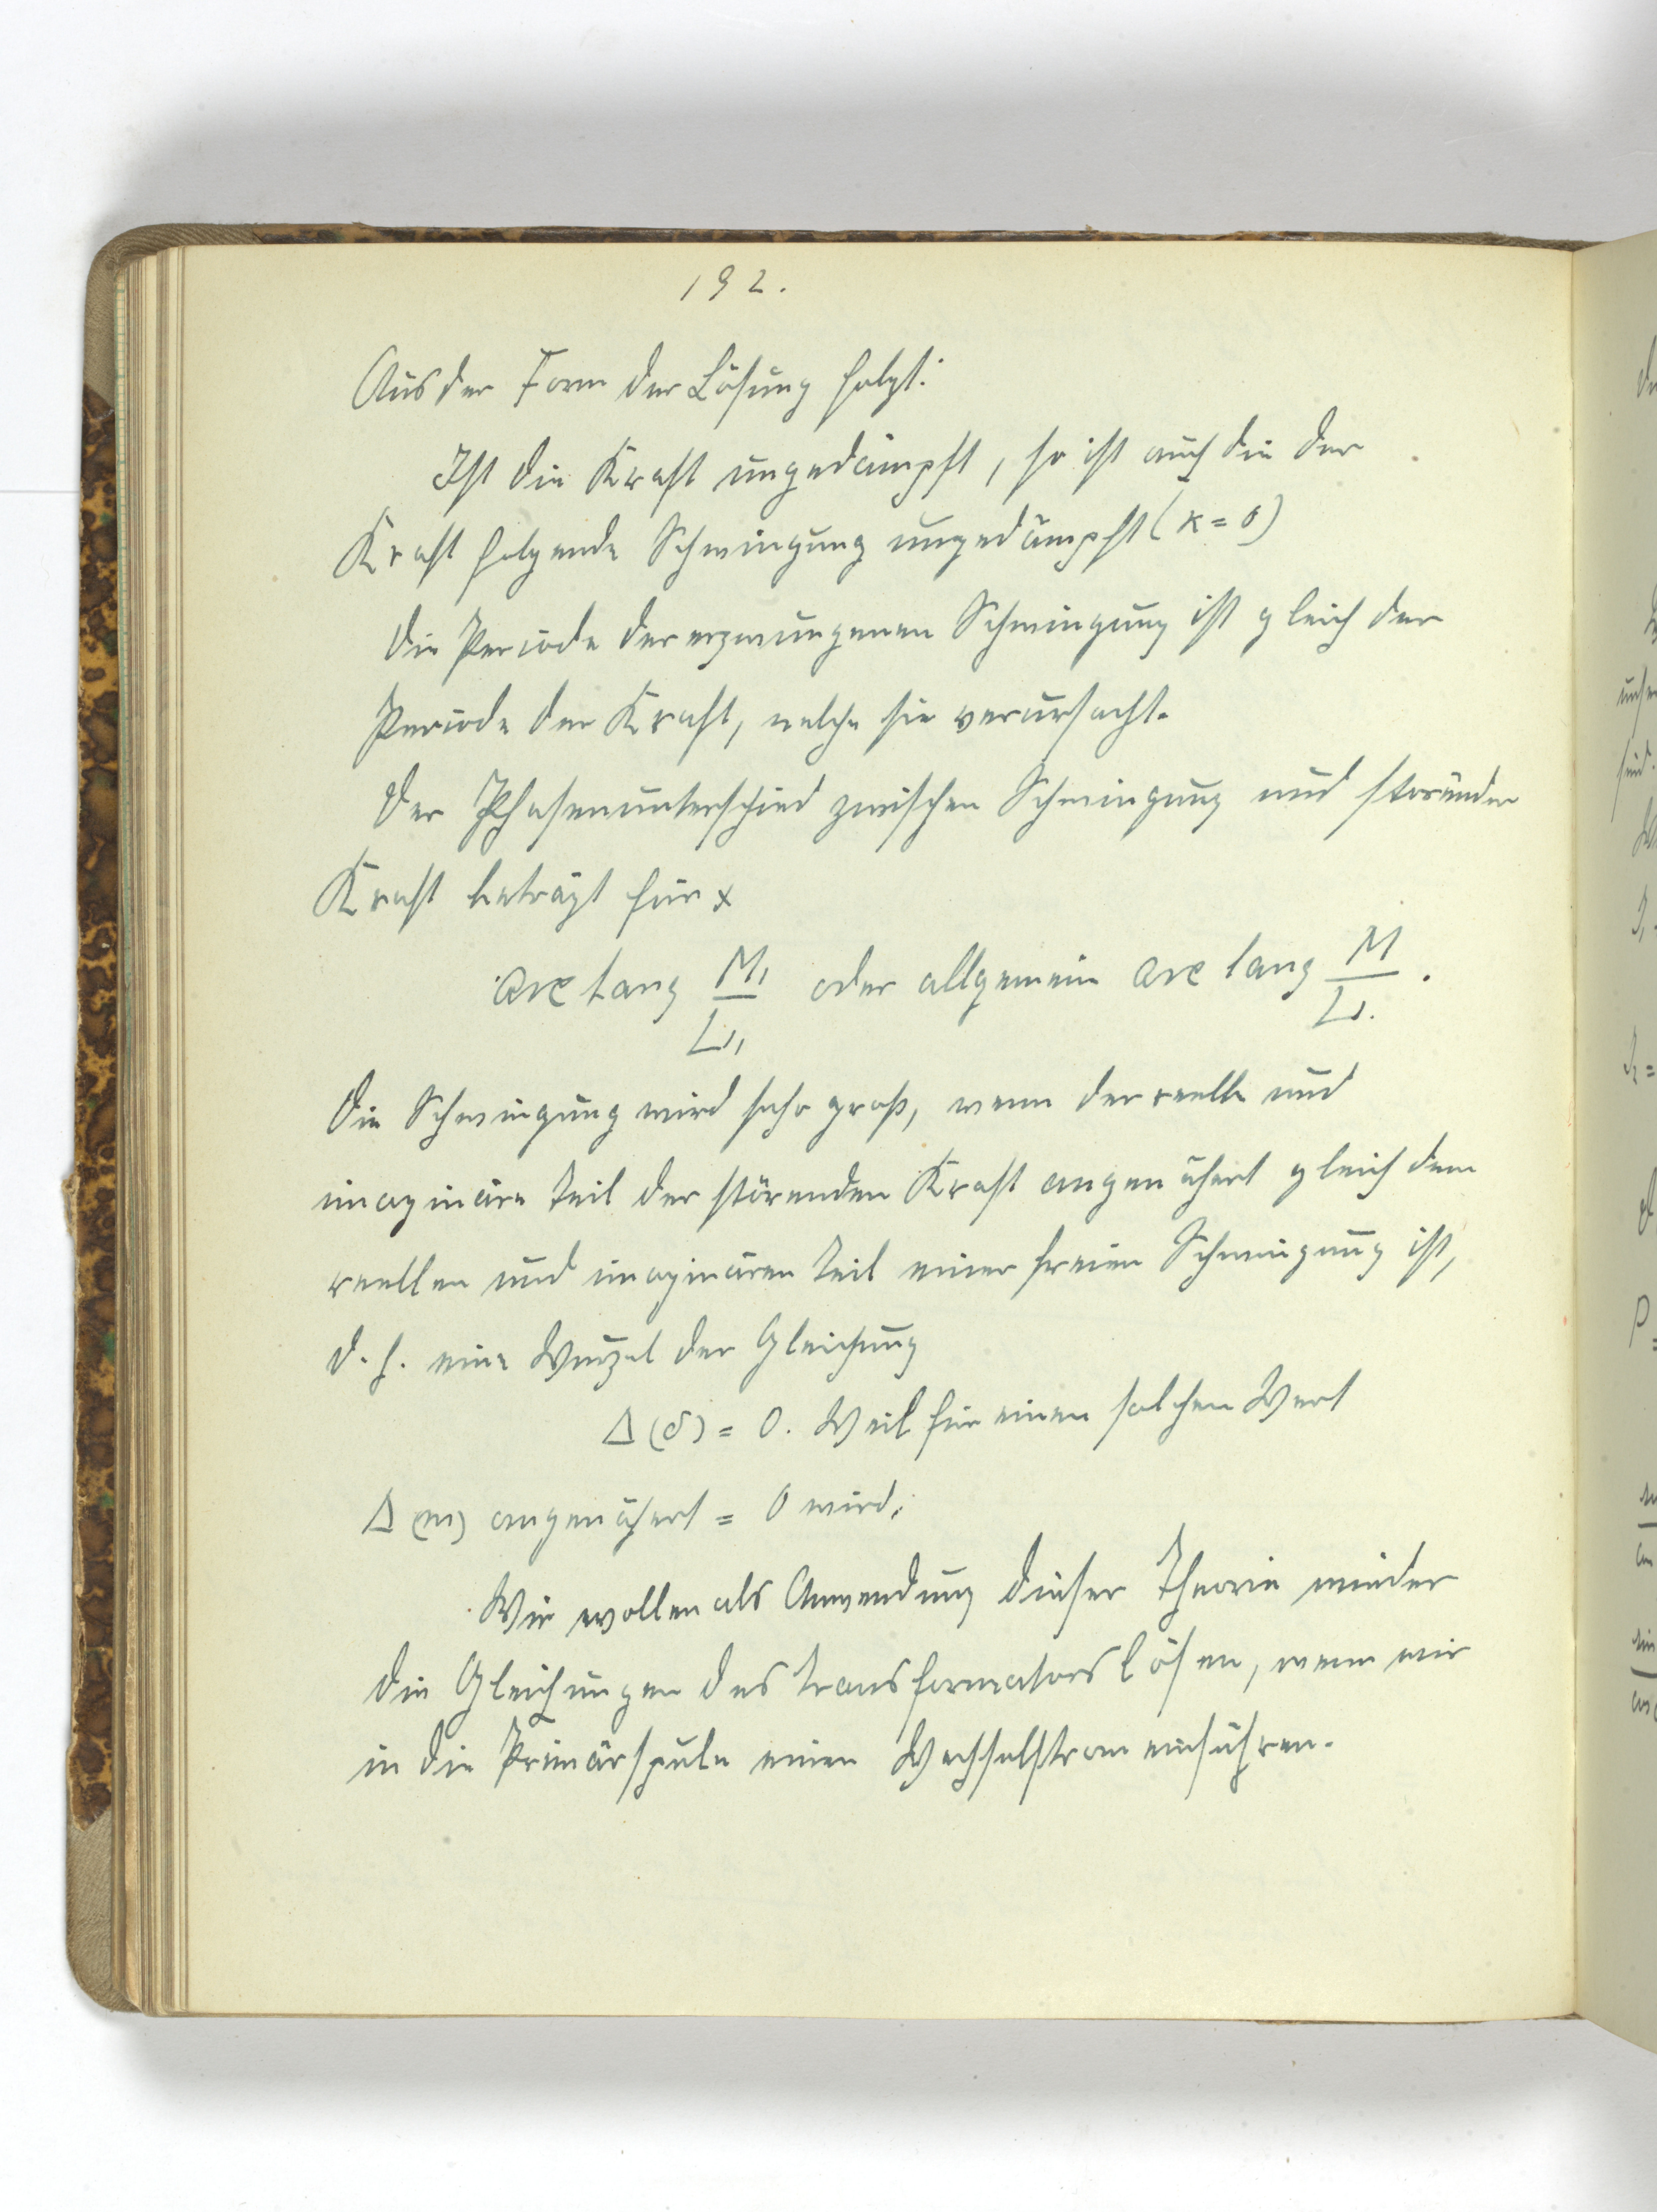 192.
Aus der Form der Lösung folgt:
Ist die Kraft ungedämpft, so ist auch die der
Kraft folgende Schwingung ungedämpft (κ = 0)
Die Periode der erzwungenen Schwingung ist gleich der
Periode der Kraft, welche sie verursacht.
Der Phasenunterschied zwischen Schwingung und störender
Kraft beträgt für x
arc tang M₁/L₁ oder allgemein arc tang M/L.
Die Schwingung wird sehr groß, wenn der reelle und
imaginäre Teil der störenden Kraft angenähert gleich dem
reellen und imaginären Teil einer freien Schwingung ist,
d. h. eine Wurzel der Gleichung
Δ(δ) = 0. Weil für einen solchen Wert
Δ(m) angenähert = 0 wird.
Wir wollen als Anwendung dieser Theorie wieder
die Gleichungen des Transformators lösen, wenn wir
in die Primärspule einen Wechselstrom einführen.